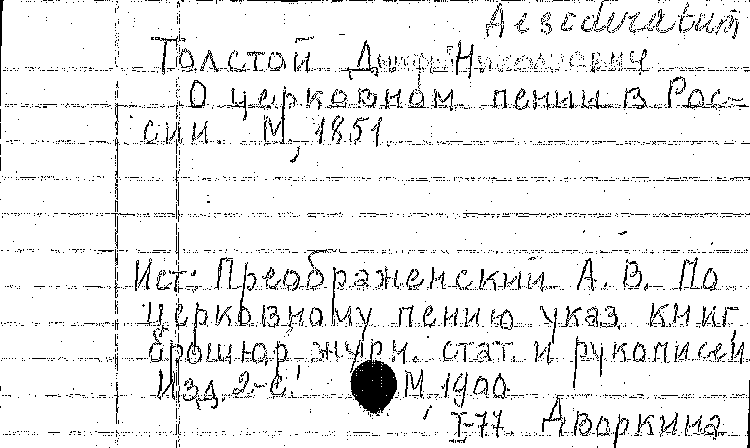 Desideratum
Толстой Дмитр Николаевич
О церковном пении в Рос-
сии. М, 1851
Ист: Преображенский А. В. По
церковному пению указ. книг,
брошюр журн. стат. и рукописей
Изд. 2-е. М, 1900
I-77. Дворкина